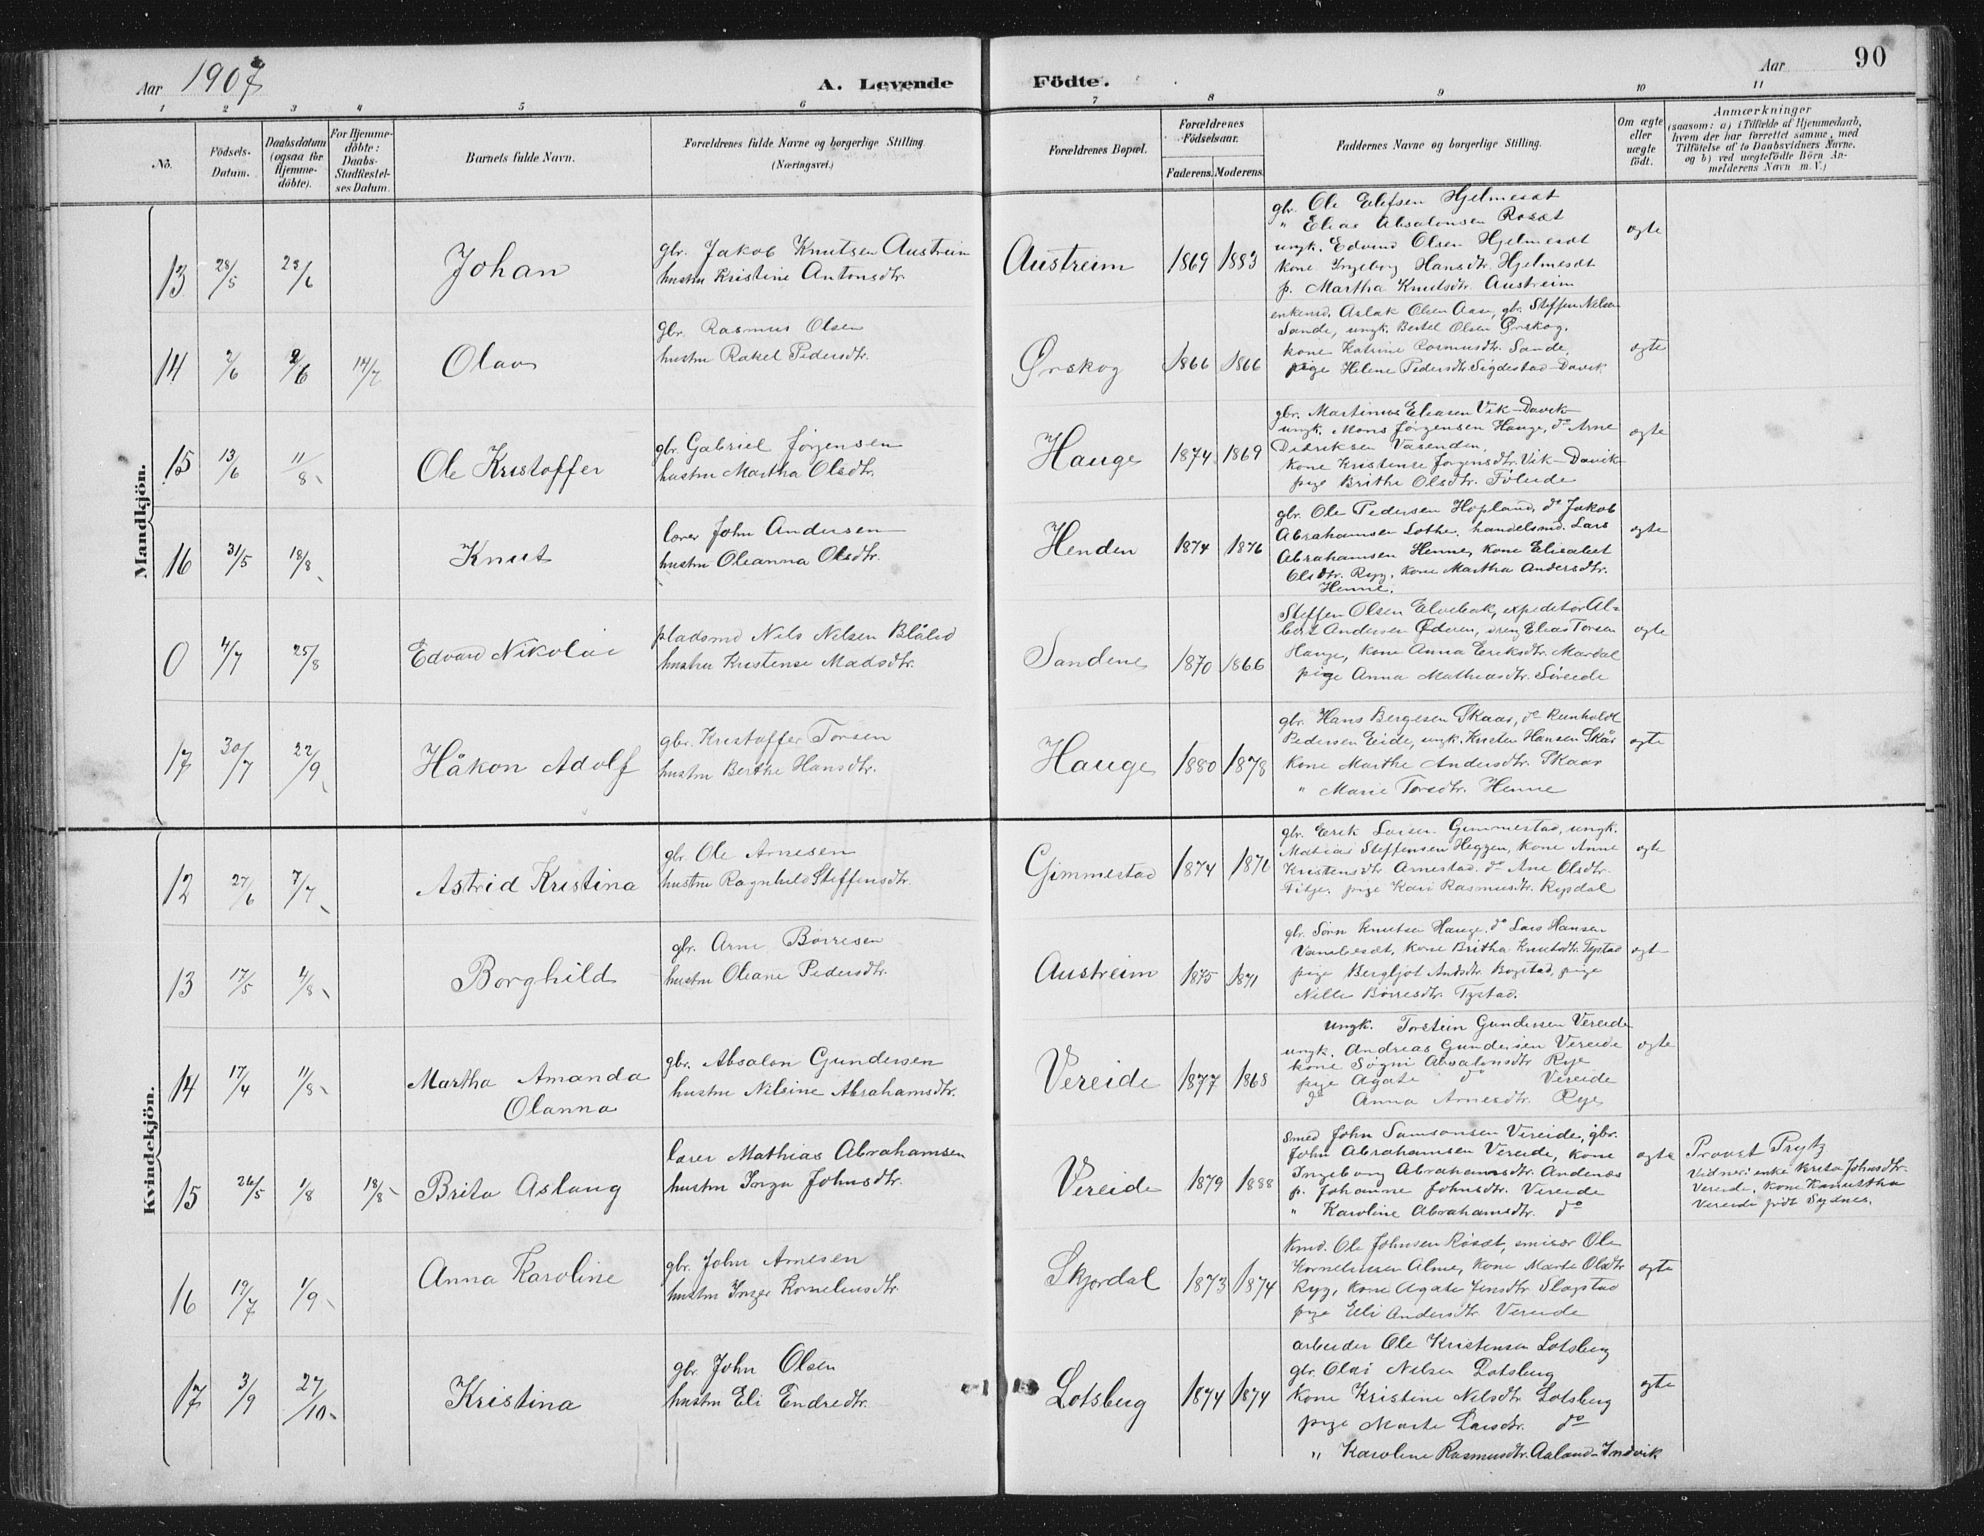 Aar 1907
A. Levende Fødte.
Aar
90
1 2 3 4 5 6 7 8 9 10 11
No.
Fødsels-Datum.
Daabsdatum (ogsaa for Hjemme-døbte).
For Hjemme-døbte: Daabs-Stadfæstel-ses Datum.
Barnets fulde Navn.
Forældrenes fulde Navne og borgerlige Stilling (Næringsvei.)
Forældrenes Bopæl.
Forældrenes Fødselsaar.
Faderens. Moderens.
Faddernes Navne og borgerlige Stilling.
Om ægte eller uægte født.
Anmærkninger
(saasom: a) i Tilfælde af Hjemmedaab, hvem der har forrettet samme, med Tilføielse af to Daabsvidners Navne, og b) ved uægtefødte Børn An-melderens Navn m. V.)
Mandkjön.
13 28/5 23/6 Johan
gbr. Jakob Knutsen Austreim
hustru Kristine Antonsdtr.
Austreim 1869 1883
gbr. Ole Elefsen Hjelmeset
" Elias Absalonsen Roset
ungk. Edvind Olsen Hjelmeset
kone Ingeborg Hansdtr. Hjelmeset
p. Martha Knutsdtr. Austreim
ægte
14 2/6 2/6 14/7 Olav
gbr. Rasmus Olsen
hustru Rakel Pedersdtr.
Ørskog 1866 1866
enkemd. Aslak Olsen Aase, gbr. Steffen Nilsen
Sande, ungk. Bertel Olsen Ørskog.
kone Katrine Rasmusdtr. Sande,
pige Helene Pedersdtr. Sigdestad-Davik
ægte
15 13/6 11/8 Ole Kristoffer
gbr. Gabriel Jørgensen
hustru Martha Olsdtr.
Hauge 1874 1869
gbr. Martinus Eliasen Vik-Davik
ungk. Mons Jørgensen Hauge, do Arne
Didriksen Vasenden,
kone Kristense Jørgensdtr. Vik-Davik
pige Brithe Olsdtr. Føleide
ægte
16 31/5 18/8 Knut
lærer John Andersen
hustru Oleanna Olsdtr.
Henden 1874 1876
gbr. Ole Pedersen Hopland, do Jakob
Abrahamsen Lothe, handelsmd. Lars
Abrahamsen Henne, kone Elisabet
Olsdtr. Ryg, kone Martha Andersdtr.
Henne.
ægte
0 4/7 25/8 Edvard Nikolai
pladsmd Nils Nilsen Blålid
hustru Kristense Madsdtr.
Sandene 1870 1866
Steffen Olsen Elvebak, expeditør Al-
bert Andersen Øderen, dreng Elias Torsen
Hauge, kone Anna Eriksdtr. Mardal
pige Anna Mathiasdtr. Søreide
ægte
17 30/7 22/9 Håkon Adolf
gbr. Kristoffer Torsen
hustru Berthe Hansdtr.
Hauge 1880 1878
gbr. Hans Bergesen Skaar, do Reinholdt
Pedersen Eide, ungk. Kristen Hansen Skår
kone Marthe Andersdtr. Skaar
" Marie Torsdtr. Henne
ægte
Kvindekjön.
12 27/6 7/7 Astrid Kristina
gbr. Ole Arnesen
hustru Ragnhild Steffensdtr.
Gimmestad 1874 1876
gbr. Erik Larsen Gimmestad, ungk.
Matias Steffensen Heggen, kone Anne
Kristensdtr. Arnestad. do Ane Olsdtr.
Fitje, pige Kari Rasmusdtr. Rysdal
ægte
13 17/5 4/8 Borghild
gbr. Arne Børresen
hustru Oleane Pedersdtr.
Austreim 1875 1871
gbr. Sørn Knutsen Hauge. do Lars Hansen
Vanebeset, kone Britha Knutsdtr. Tystad
pige Bergljot Andsdtr. Bogstad, pige
Nille Børresdtr. Tystad.
ægte
14 17/4 11/8 Martha Amanda
Olanna
gbr. Absalon Gundersen
hustru Nilsine Abrahamsdtr.
Vereide 1877 1868
ungk. Torstein Gundersen Vereide
ungk. Andreas Gundersen Vereide
kone Søgni Absalonsdtr. Rye
pige Agate do Vereide
do Anna Arnesdtr. Rye
ægte
15 26/5 1/8 18/8 Brita Aslaug
lærer Mathias Abrahamsen
hustru Inga Johnsdtr.
Vereide 1879 1888
smed John Samsonsen Vereide, gbr.
John Abrahamsen Vereide, kone
Ingeborg Abrahamsdtr. Andenæs
p. Johanne Johnsdtr. Vereide
" Karoline Abrahamsdtr. do
ægte
Provst Prytz
Vidner: enke Brita Johnsdtr.
Vereide, kone
Vereide født Sydnes.
16 19/7 1/9 Anna Karoline
gbr. John Arnesen
hustru Inger Korneliusdtr.
Skjerdal 1873 1874
kmd. Ole Johnsen Røset, Ole
Korneliussen Alme, kone Marte Olsdtr
Ryg, kone Agate Jensdtr Slagstad
pige Eli Andersdtr. Vereide
ægte
17 3/9 27/10 Kristina
gbr. John Olsen
hustru Eli Endredtr.
Lotsberg 1874 1874
arbeider Ole Kristensen Lotsberg
gbr. Olai Nilsen Lotsberg
kone Kristine Nilsdtr. Lotsberg
pige Marte Larsdtr. do
" Karoline Rasmusdtr. Aaland-Indvik
ægte